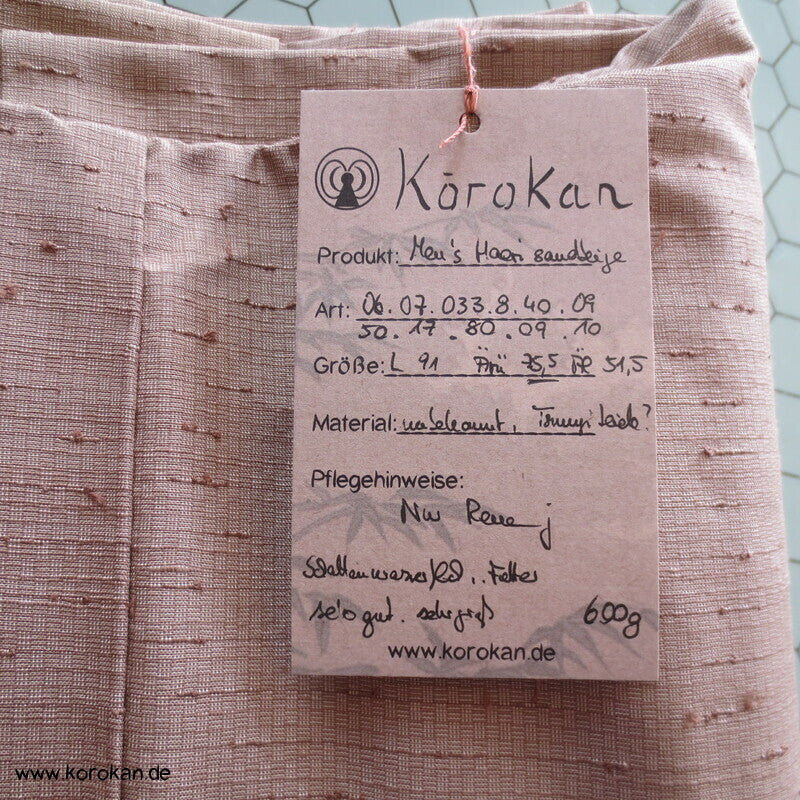 Kōrokan
Produkt: Men's Haori sandbeige
Art: 06.07.033.8.40.09
50.17.80.09.10
Größe: L 91 Ärü 75,5 Äl 51,5
Material: unbekannt, Tsumugi Seide?
Pflegehinweise:
Nur
Futter
gut. sehr groß 600g
www.korokan.de
www.korokan.de